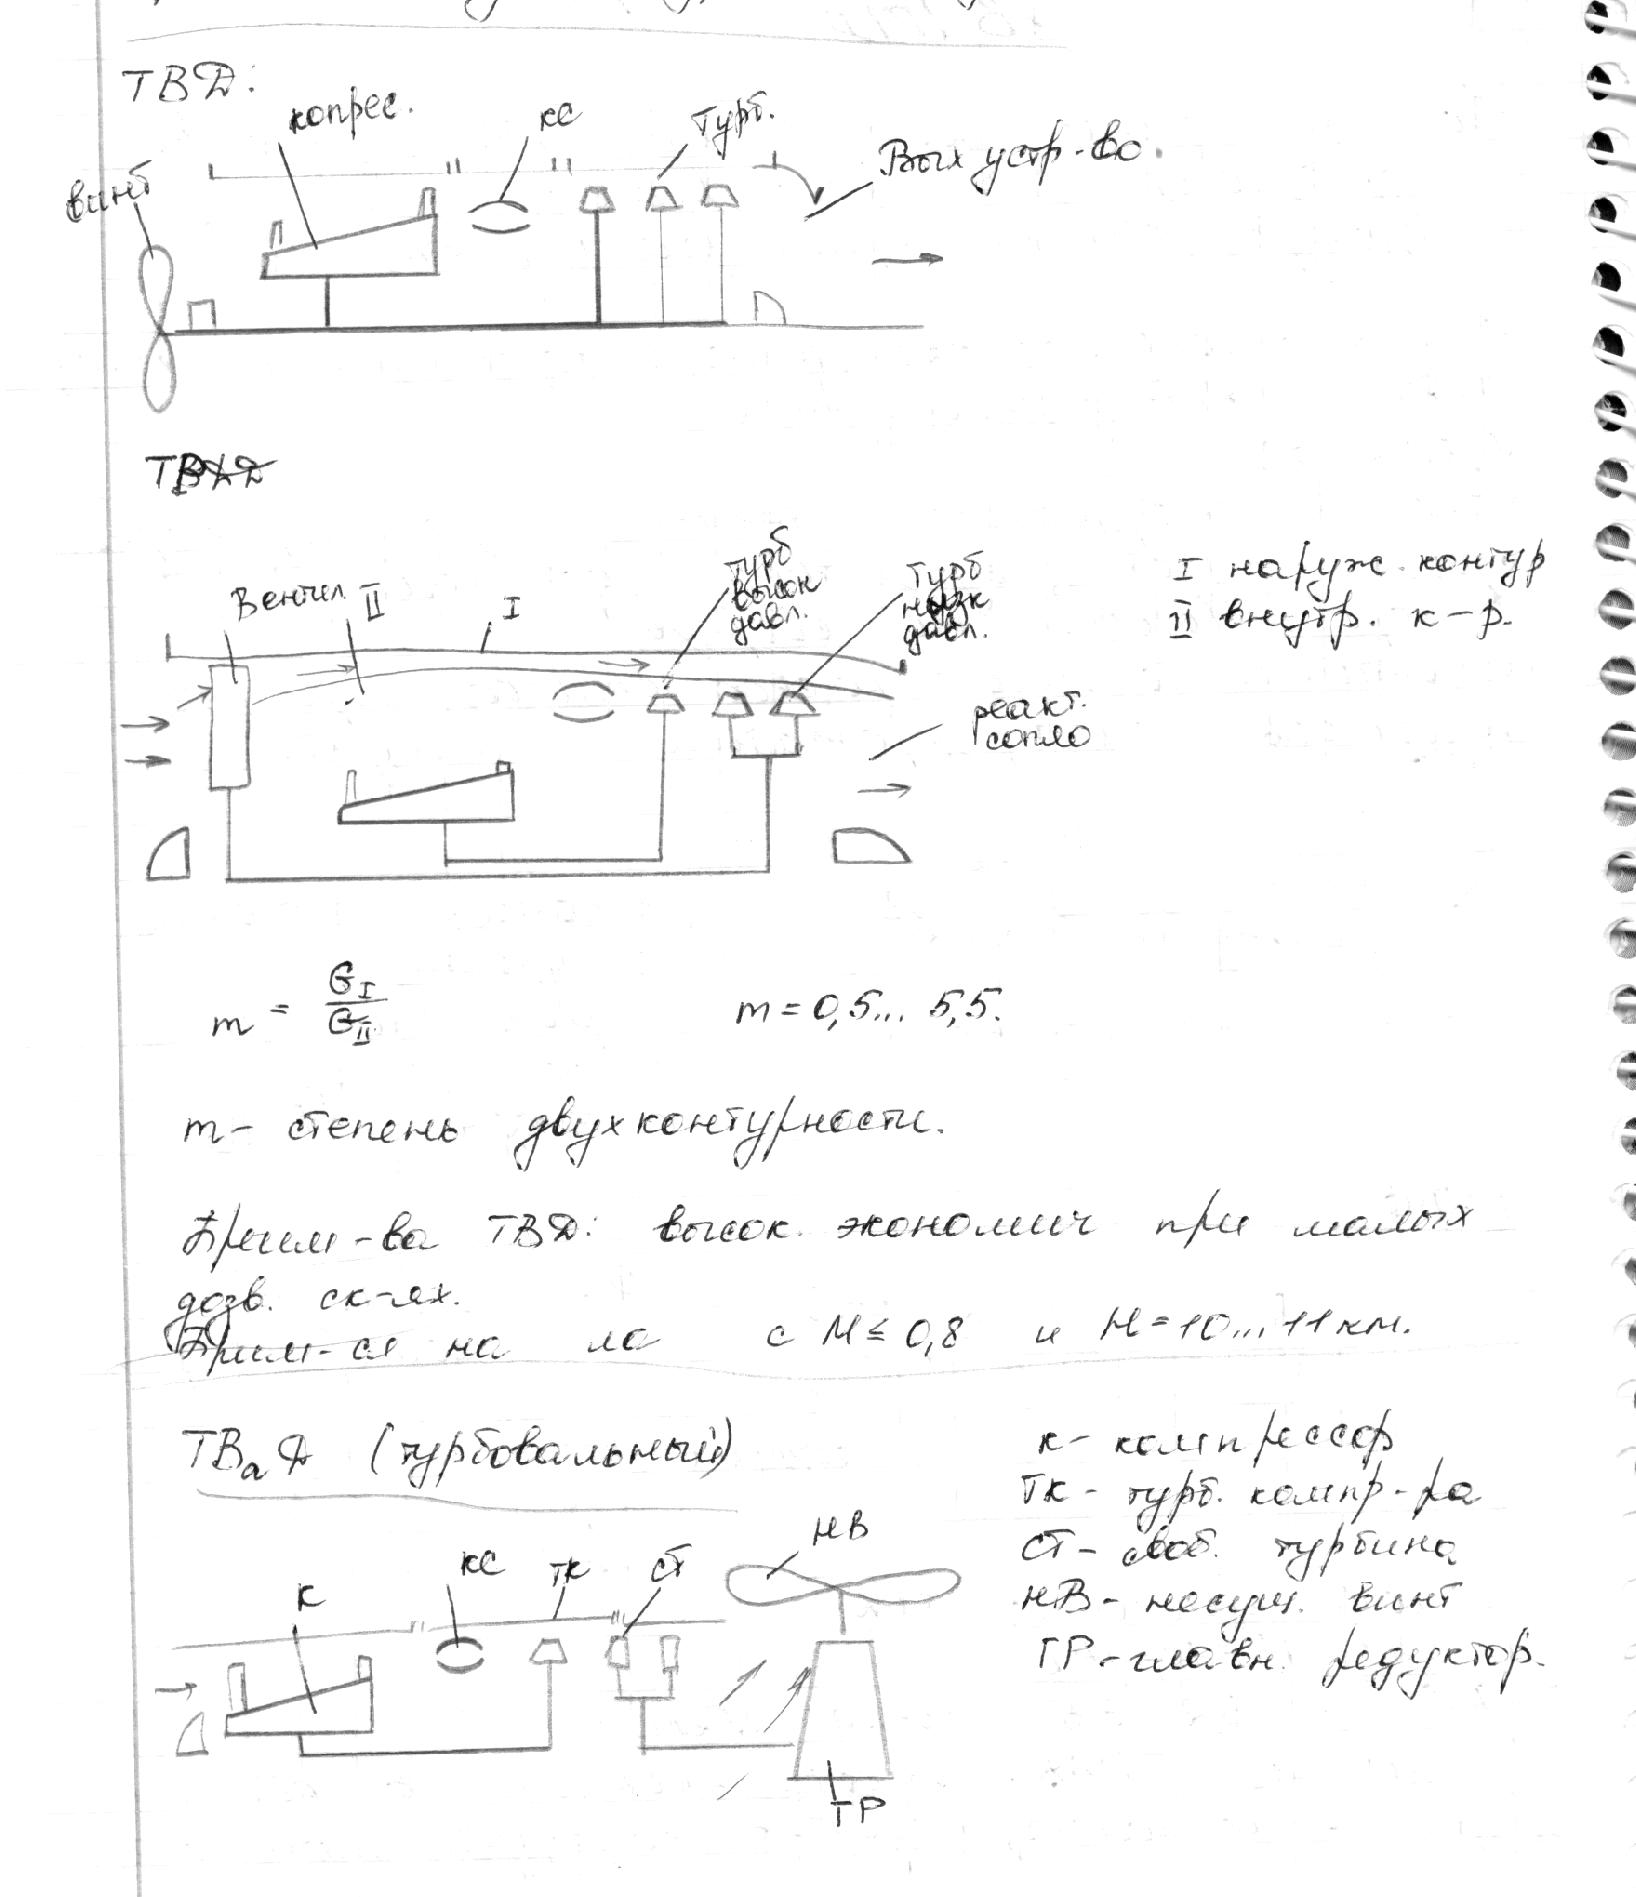 ТВД:
копрес.
кс
турб.
Вых устр-во.
винт
ТВ
турб
высок
давл.
турб
низк
давл.
I наруж. контур
Вентил
II
I
II внутр. к-р.
реакт.
сопло
m = G_I / G_II
m = 0,5... 5,5.
m - степень двухконтурности.
Преим-ва ТВД: высок. экономич при малых
дозв. ск-ях.
Прим-ся на ла с M ≤ 0,8 и H = 10... 11 км.
ТВаД (турбовальный)
к - компрессор
ТК - турб. компр-ра
СТ - своб. турбина
НВ - несущ. винт
ГР - главн. редуктор.
НВ
К
кс
ТК
СТ
ГР